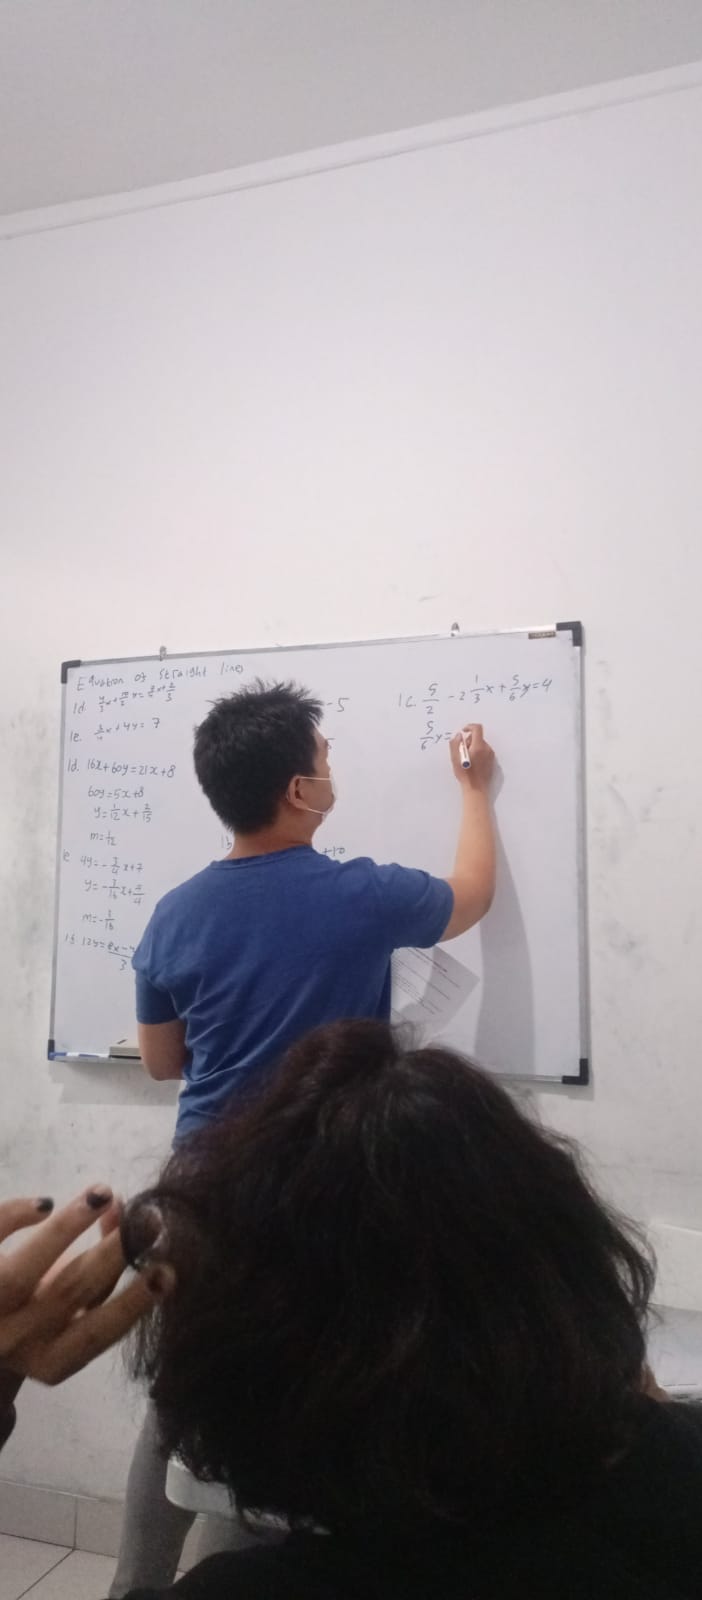 Equation of straight lines
1d. 4/3x + 10/2y = 7/4x + 2/3
1e. 3/4x + 4y = 7
1d. 16x + 60y = 21x + 8
60y = 5x + 8
y = 1/12x + 2/15
m = 1/12
e 4y = -3/4x + 7
y = -3/16x + 7/4
m = -3/16
12y =
3
-5
1b
+10
1c. 5/2 - 2 1/3x + 5/6y = 4
5/6y =